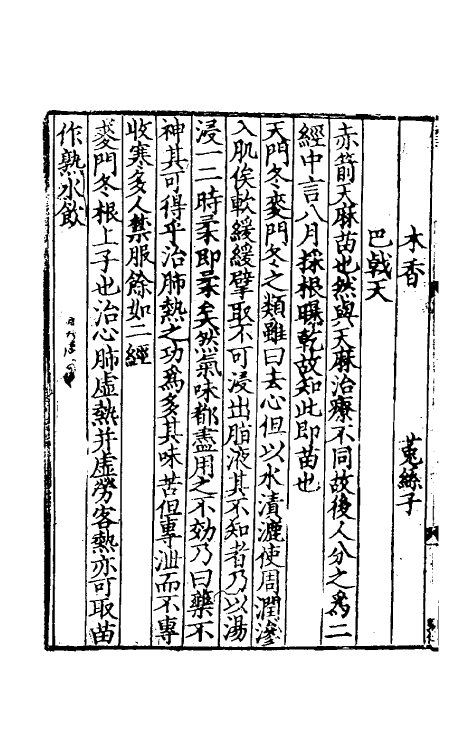 木香　菟絲子
巴戟天
赤箭天麻苗也然與天麻治療不同故後人分之爲二
經中言八月採根曝乾故知此即苗也
天門冬麥門冬之類雖曰去心但以水漬漉使周潤滲
入肌俟軟緩緩擘取不可浸出脂液其不知者乃以湯
浸一二時柔即柔矣然氣味都盡用之不効乃曰藥不
神其可得乎治肺熱之功爲多其味苦但專泄而不專
收寒多人禁服餘如二經
麥門冬根上子也治心肺虛熱并虛勞客熱亦可取苗
作熟水飲